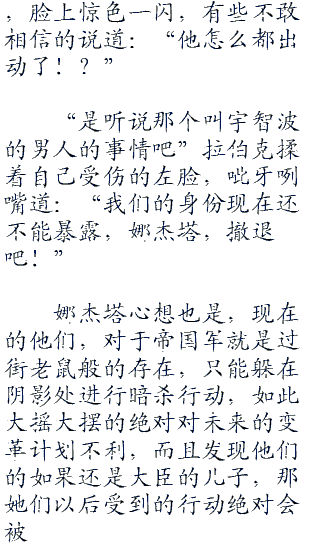 ，脸上惊色一闪，有些不敢
相信的说道：“他怎么都出
动了！？”
“是听说那个叫宇智波
的男人的事情吧”拉伯克揉
着自己受伤的左脸，呲牙咧
嘴道：“我们的身份现在还
不能暴露，娜杰塔，撤退
吧！”
娜杰塔心想也是，现在
的他们，对于帝国军就是过
街老鼠般的存在，只能躲在
阴影处进行暗杀行动，如此
大摇大摆的绝对对未来的变
革计划不利，而且发现他们
的如果还是大臣的儿子，那
她们以后受到的行动绝对会
被